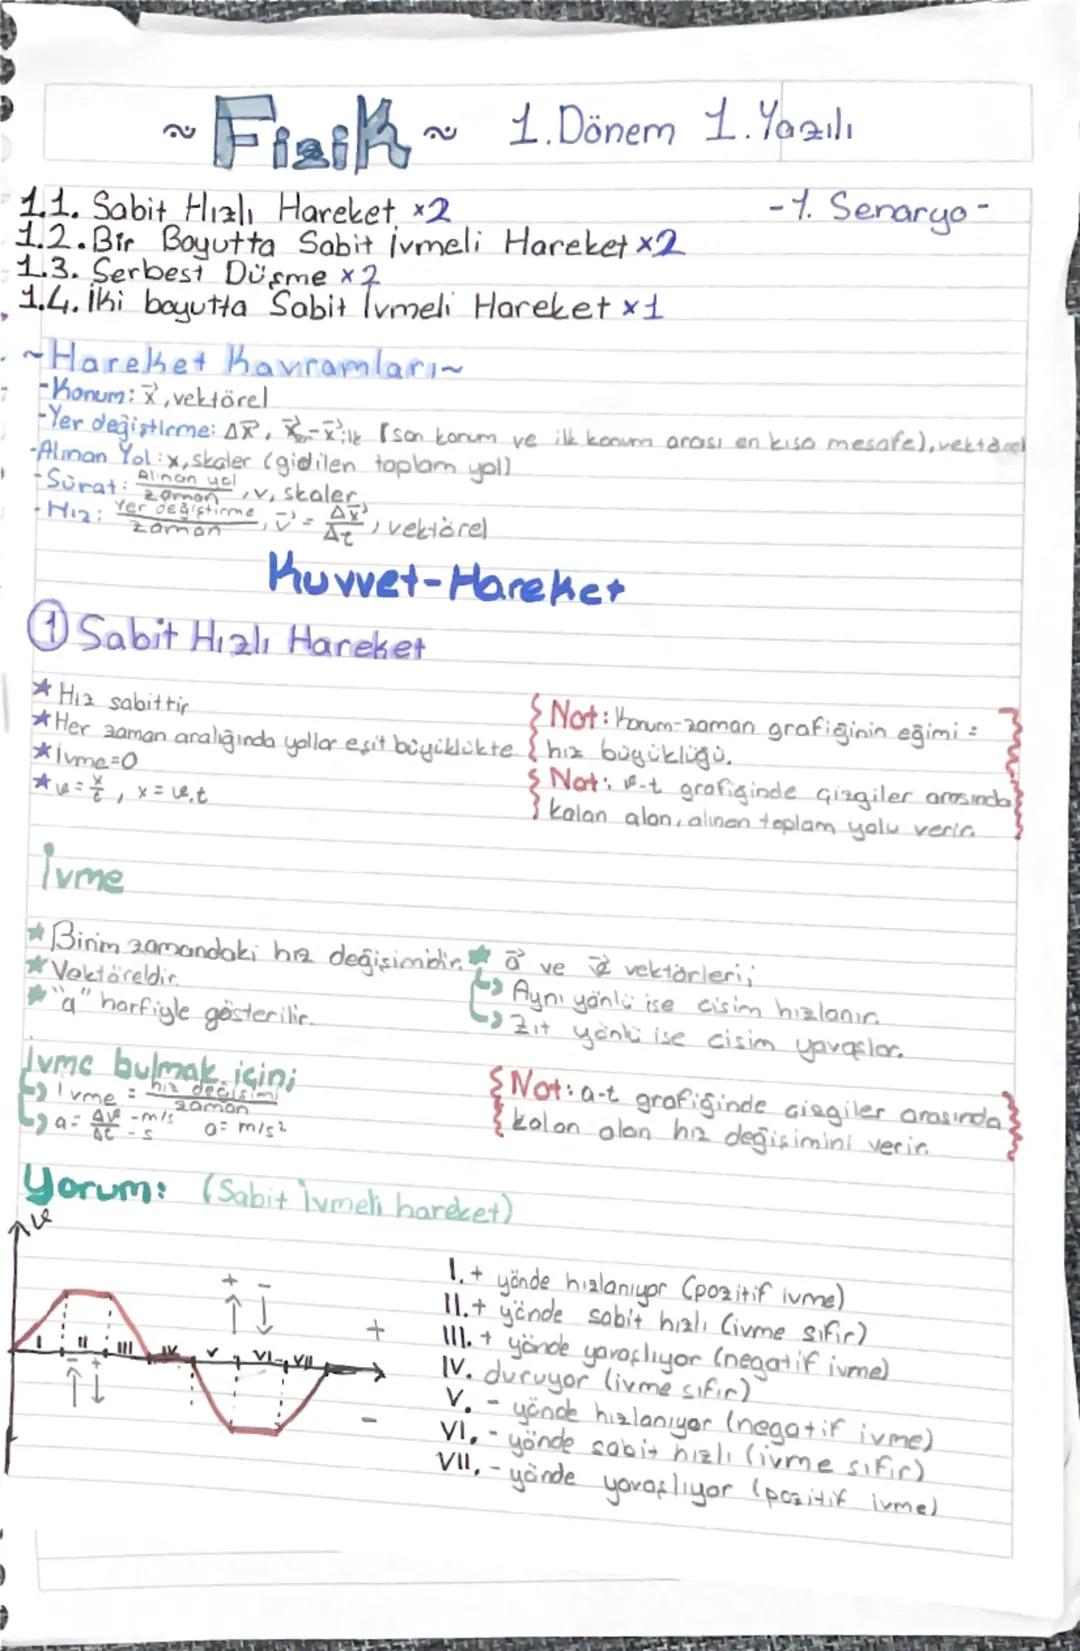 ~Fizik~ 1.Dönem 1.Yazılı
1.1. Sabit Hızlı Hareket x2 -1. Senaryo-
1.2. Bir Boyutta Sabit İvmeli Hareket x2
1.3. Serbest Düşme x2
1.4. İki boyutta Sabit İvmeli Hareket x1
~Hareket Kavramları~
-Konum: x⃗, vektörel
-Yer değiştirme: Δx⃗, x⃗son-x⃗ilk (son konum ve ilk konum arası en kısa mesafe), vektörel
-Alınan Yol: x, skaler (gidilen toplam yol)
-Sürat: Alınan yol / zaman, v, skaler
-Hız: Yer değiştirme / zaman, v⃗ = Δx⃗ / Δt, vektörel
Kuvvet-Hareket
1 Sabit Hızlı Hareket
★ Hız sabittir
★ Her zaman aralığında yollar eşit büyüklükte
★ İvme=0
★ v = x/t, x = v.t
Not: Konum-zaman grafiğinin eğimi =
hız büyüklüğü.
Not: v-t grafiğinde çizgiler arasında
kalan alan, alınan toplam yolu verir.
İvme
★ Birim zamandaki hız değişimidir.
★ Vektöreldir.
★ "a" harfiyle gösterilir.
★ a⃗ ve v⃗ vektörleri;
↳ Aynı yönlü ise cisim hızlanır.
↳ Zıt yönlü ise cisim yavaşlar.
İvme bulmak için;
↳ İvme = hız değişimi / zaman
↳ a = Δv / Δt - m/s / - s a = m/s²
Not: a-t grafiğinde çizgiler arasında
kalan alan hız değişimini verir.
Yorum: (Sabit İvmeli hareket)
v
+ -
+
I II III IV V VI VII
- +
-
I. + yönde hızlanıyor (pozitif ivme)
II. + yönde sabit hızlı (ivme sıfır)
III. + yönde yavaşlıyor (negatif ivme)
IV. duruyor (ivme sıfır)
V. - yönde hızlanıyor (negatif ivme)
VI. - yönde sabit hızlı (ivme sıfır)
VII. - yönde yavaşlıyor (pozitif ivme)